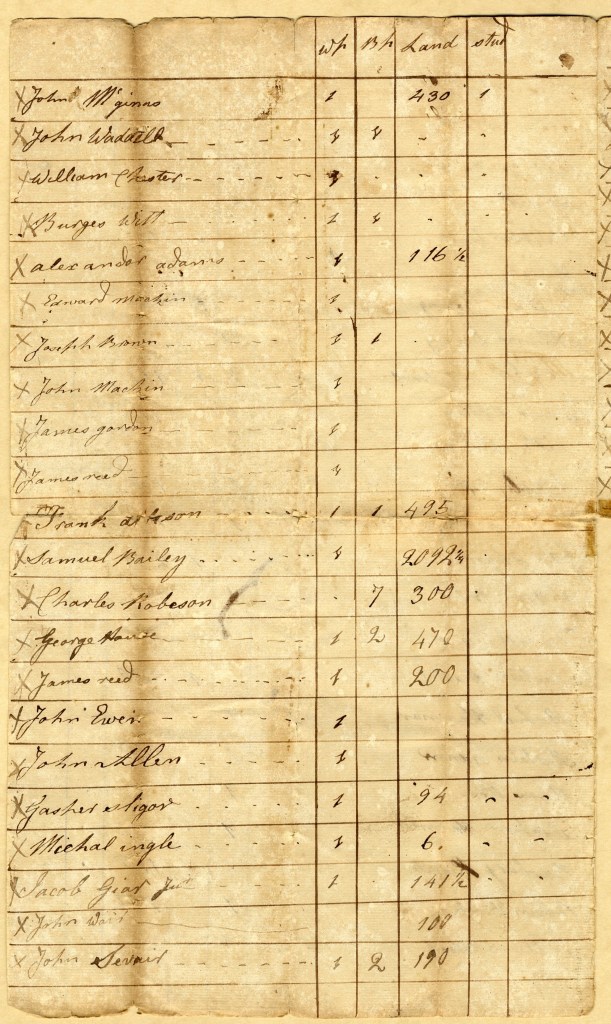 wp Bp Land stud
X John Mcginas 1 430 1
X John Waddell 1 1
X William Chester 1
X Burges Witt 1 1
X alexander adams 1 116 ½
X Edward Machin 1
X Joseph Brown 1 1
X John Machin 1
X James gordon 1
X James reed 1
Frank 1 1 495
X Samuel Bailey 1 2092 ¾
X Charles Robeson 7 300
X George House 1 2 470
X James reed 1 200
X John Ewin 1
X John Allen 1
X Gasher sligor 1 94
X Michal ingle 1 6.
X Jacob Giar Jur 1 141 ½
X John 100
X John Sevair 1 2 190